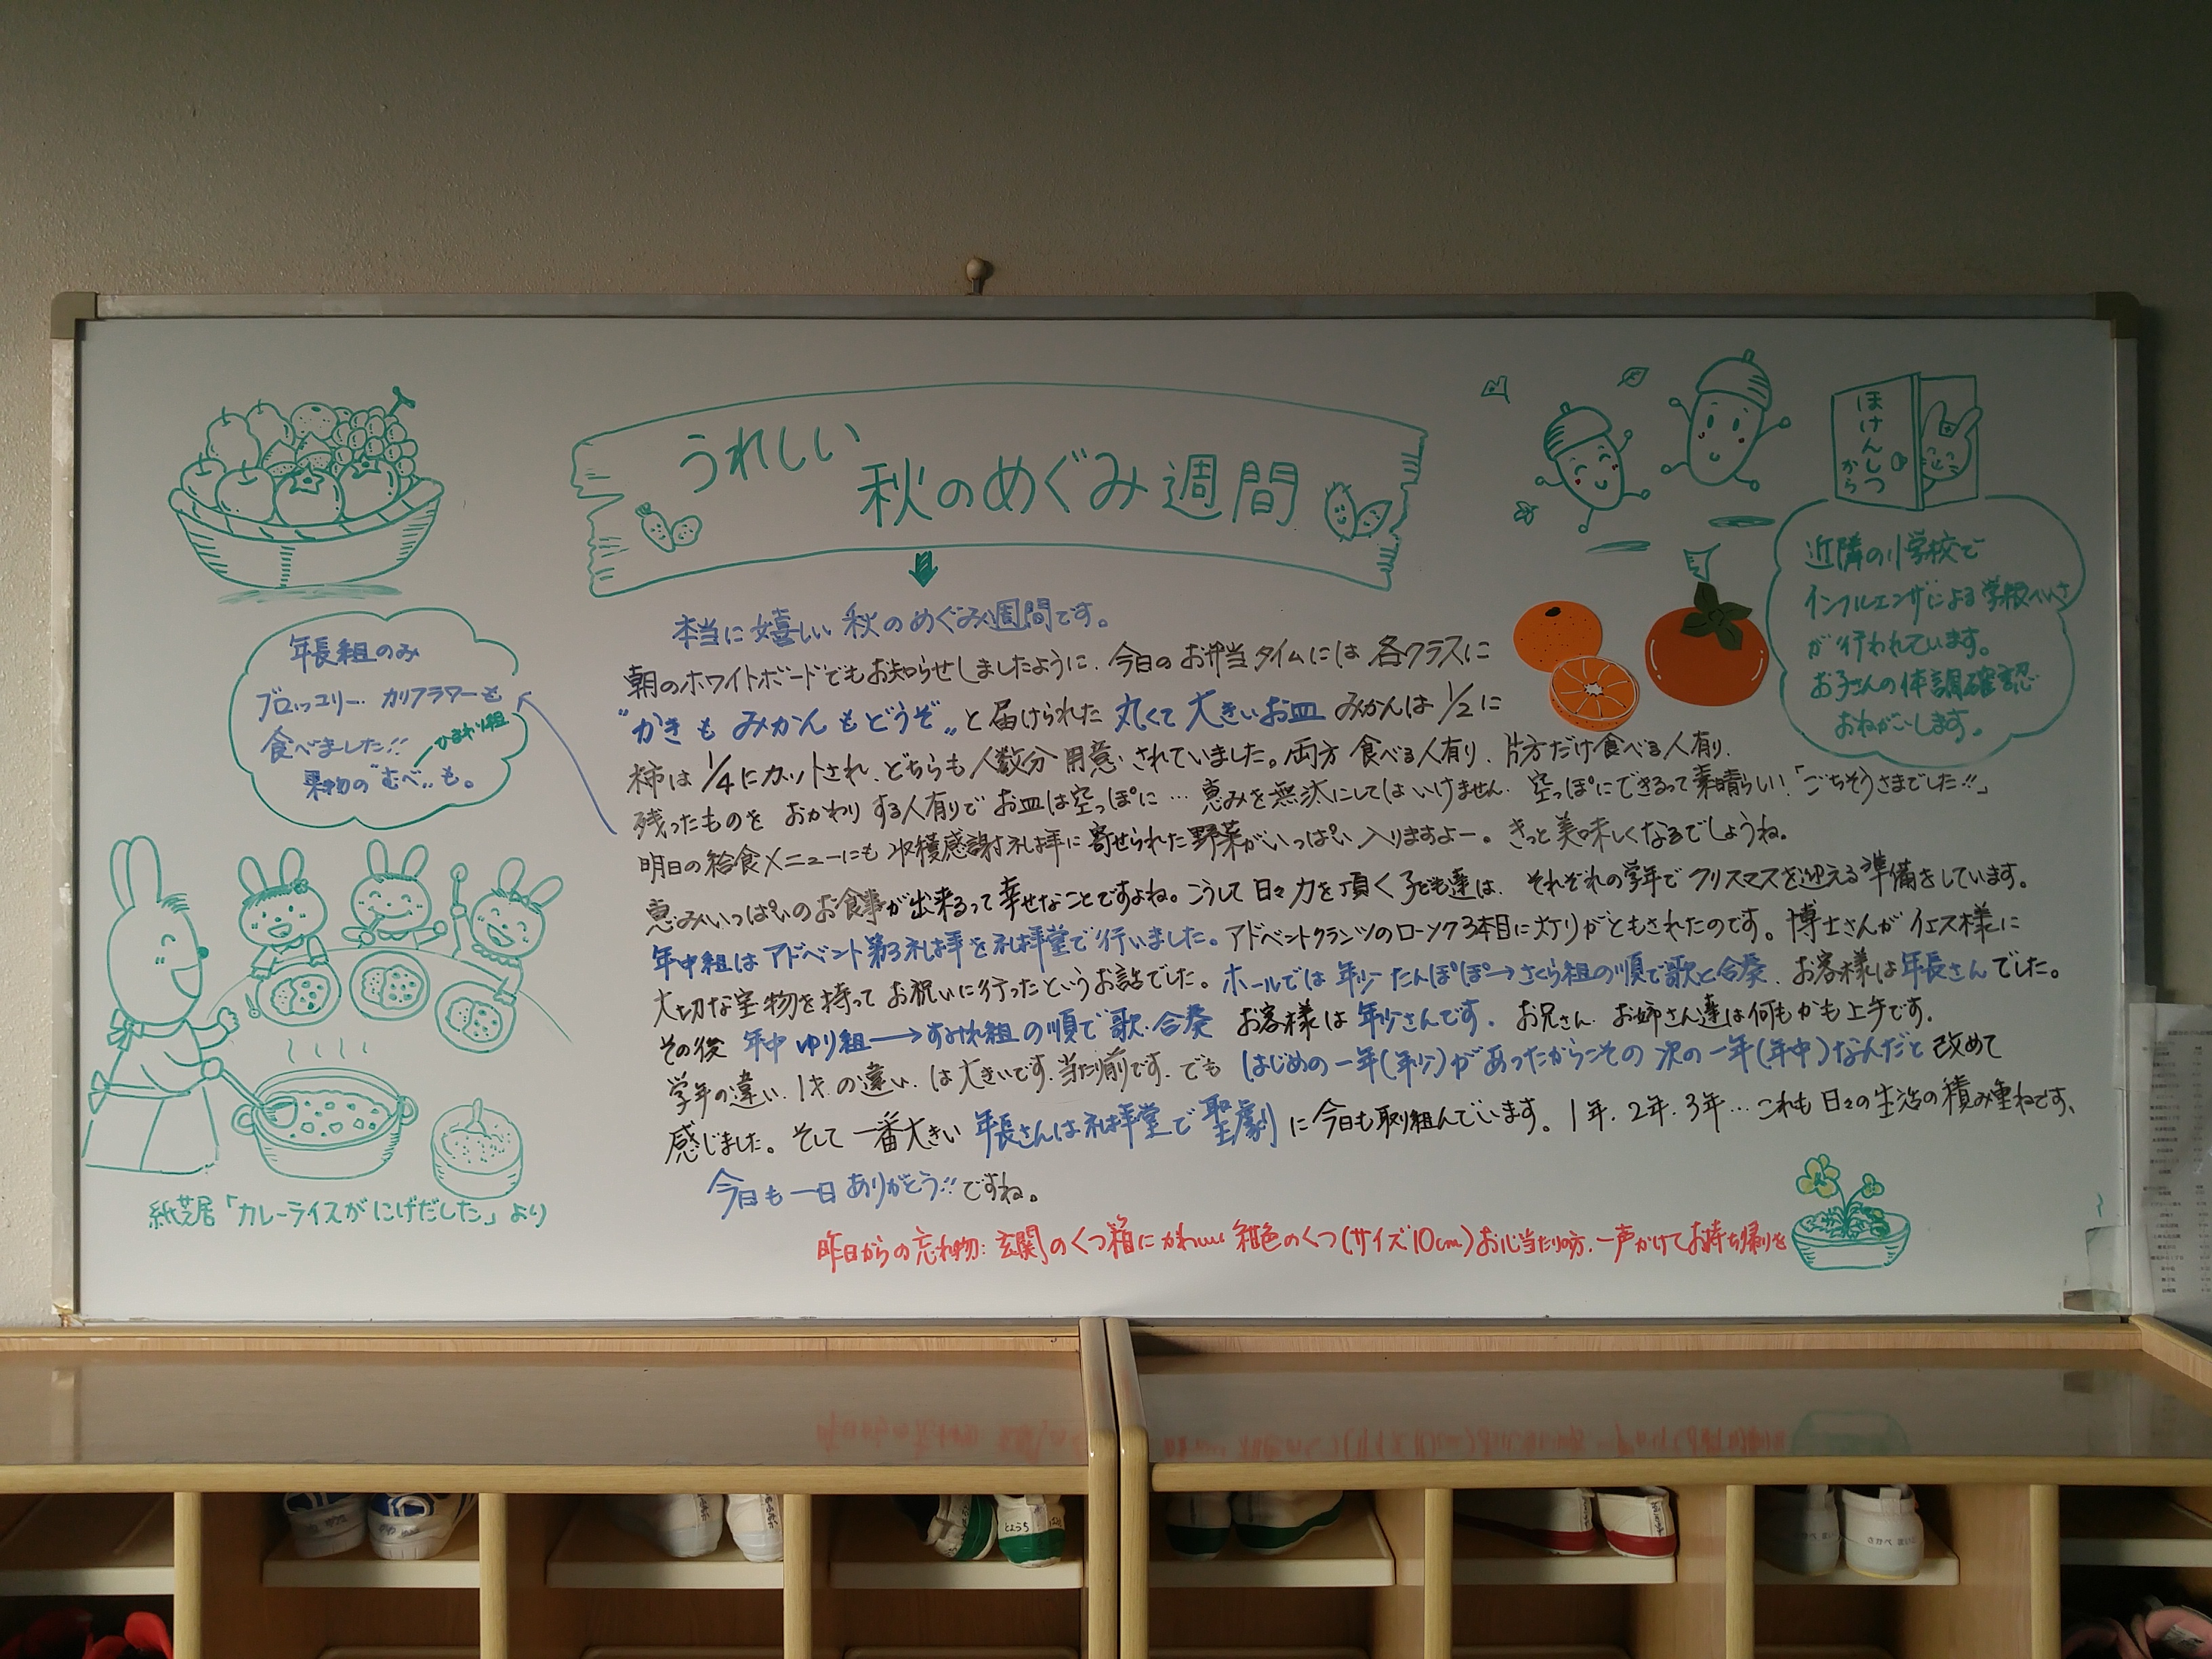 うれしい
秋のめぐみ週間
本当に嬉しい 秋のめぐみ週間です。
朝のホワイトボードでもお知らせしましたように、今日のお弁当タイムには 各クラスに
"かきも みかんもどうぞ"と届けられた 丸くて大きいお皿 みかんは1/2に
柿は1/4にカットされ、どちらも人数分用意されていました。両方食べる人有り、片方だけ食べる人有り、
残ったものを おかわりする人有りで お皿は空っぽに… 恵みを無駄にしてはいけません。空っぽにできるって素晴らしい!「ごちそうさまでした!!」
明日の給食メニューにも 収穫感謝礼拝に寄せられた野菜がいっぱい入りますよー。きっと美味しくなるでしょうね。
恵みいっぱいのお食事が出来るって幸せなことですよね。こうして日々力を頂く子ども達は、それぞれの学年でクリスマスを迎える準備をしています。
年中組はアドベント第3礼拝を礼拝堂で行いました。アドベントクランツのローソク3本目に灯りがともされたのです。博士さんがイエス様に
大切な宝物を持ってお祝いに行ったというお話でした。ホールでは年少たんぽぽ→さくら組の順で歌と合奏、お客様は年長さんでした。
その後 年中 ゆり組→すみれ組の順で歌・合奏 お客様は年少さんです。お兄さん お姉さん達は何もかも上手です。
学年の違い、1才の違い、は大きいです。当たり前です。でも はじめの一年(年少)があったからこその 次の一年(年中)なんだと改めて
感じました。そして一番大きい 年長さんは礼拝堂で聖劇に今日も取り組んでいます。1年、2年、3年…これも日々の生活の積み重ねです、
今日も一日ありがとう!!ですね。
昨日からの忘れ物:玄関のくつ箱にかわいい紺色のくつ(サイズ10cm)お心当たりの方、一声かけてお持ち帰りを
年長組のみ
ブロッコリー、カリフラワーも
食べました!!
ひまわり組
果物の"むべ"も。
紙芝居「カレーライスがにげだした」より
ほけんしつ
から
近隣の小学校で
インフルエンザによる学級へいさ
が行われています。
お子さんの体調確認
おねがいします。
とようち
さかべ まい